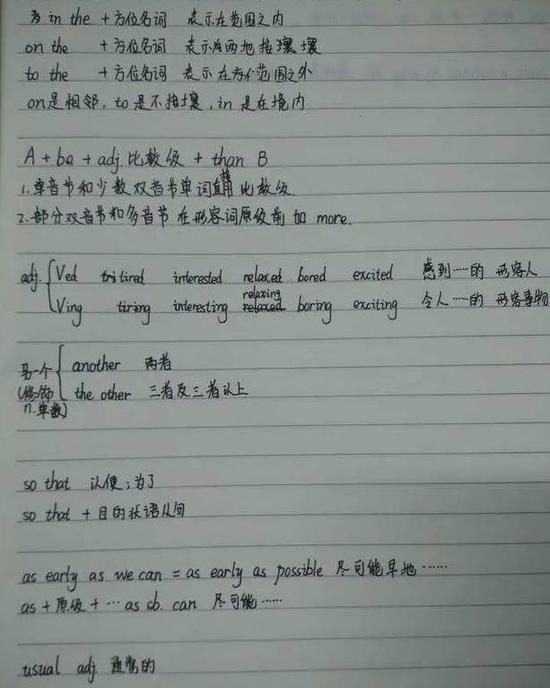 为 in the + 方位名词 表示在范围之内
on the + 方位名词 表示在两地接壤
to the + 方位名词 表示在范围之外
on是相邻, to 是不接壤, in 是在境内
A + be + adj. 比较级 + than B
1. 单音节和少数双音节单词直接用比较级
2. 部分双音节和多音节在形容词原级前加 more.
adj. { Ved tired interested relaxed bored excited 感到……的 形容人
Ving tiring interesting relaxing boring exciting 令人……的 形容事物
另一个 { another 两者
(修饰n.单数) the other 三者及三者以上
so that 以便;为了
so that + 目的状语从句
as early as we can = as early as possible 尽可能早地……
as + 原级 + … as sb. can 尽可能……
usual adj. 通常的